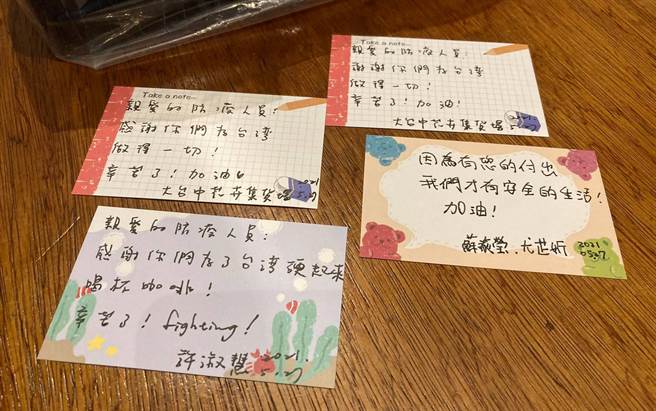 Take a note...
親愛的防疫人員:
謝謝你們為台灣
做得一切!
辛苦了!加油!
大台中花卉集貨場
Take a note...
親愛的防疫人員:
感謝你們為台灣
做得一切!
辛苦了!加油
大台中花卉集貨場
2021
因為有您的付出
我們才有安全的生活!
加油!
2021
親愛的防疫人員:
感謝你們為了台灣頭起來
喝杯咖啡!
辛苦了!fighting!
許淑慧 2021.